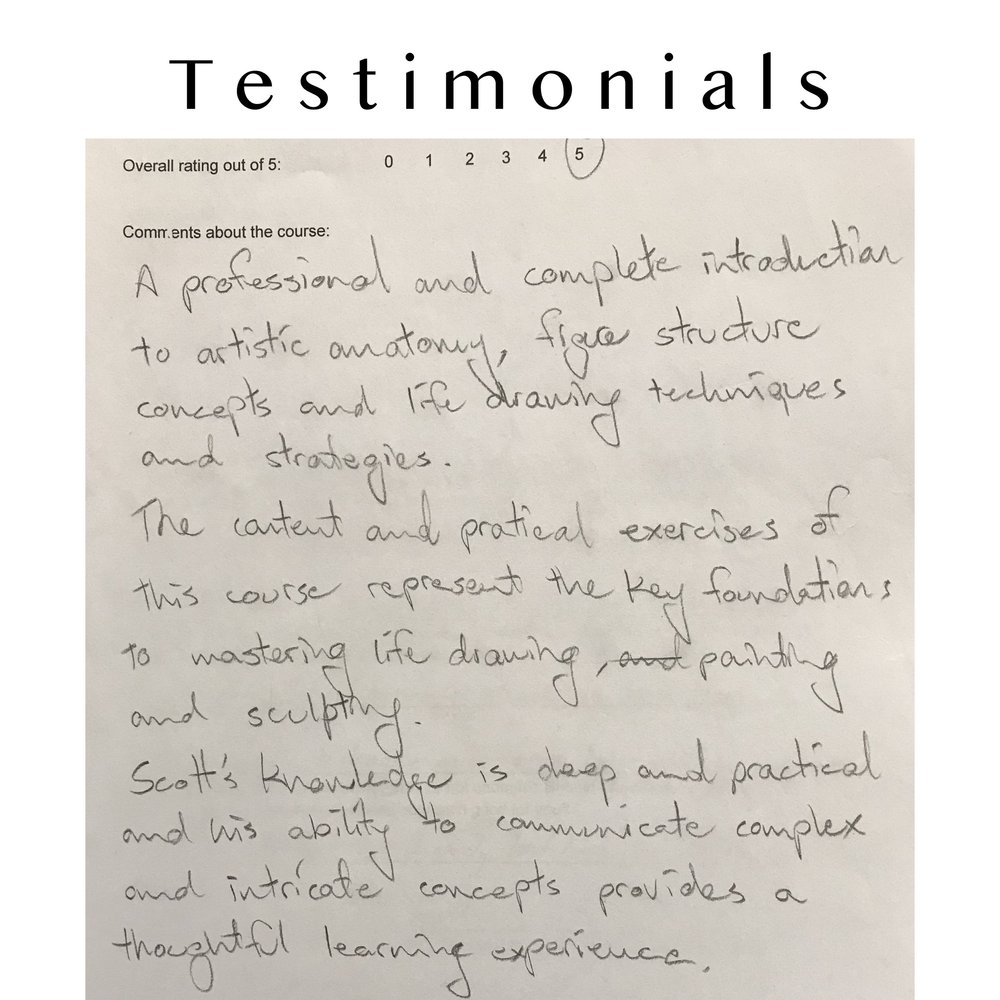 Testimonials
Overall rating out of 5: 0 1 2 3 4 5
Comments about the course:
A professional and complete introduction
to artistic anatomy, figure structure
concepts and life drawing techniques
and strategies.
The content and pratical exercises of
this course represent the key foundations
to mastering life drawing, and painting
and sculpting.
Scott's knowledge is deep and practical
and his ability to communicate complex
and intricate concepts provides a
thoughtful learning experience.